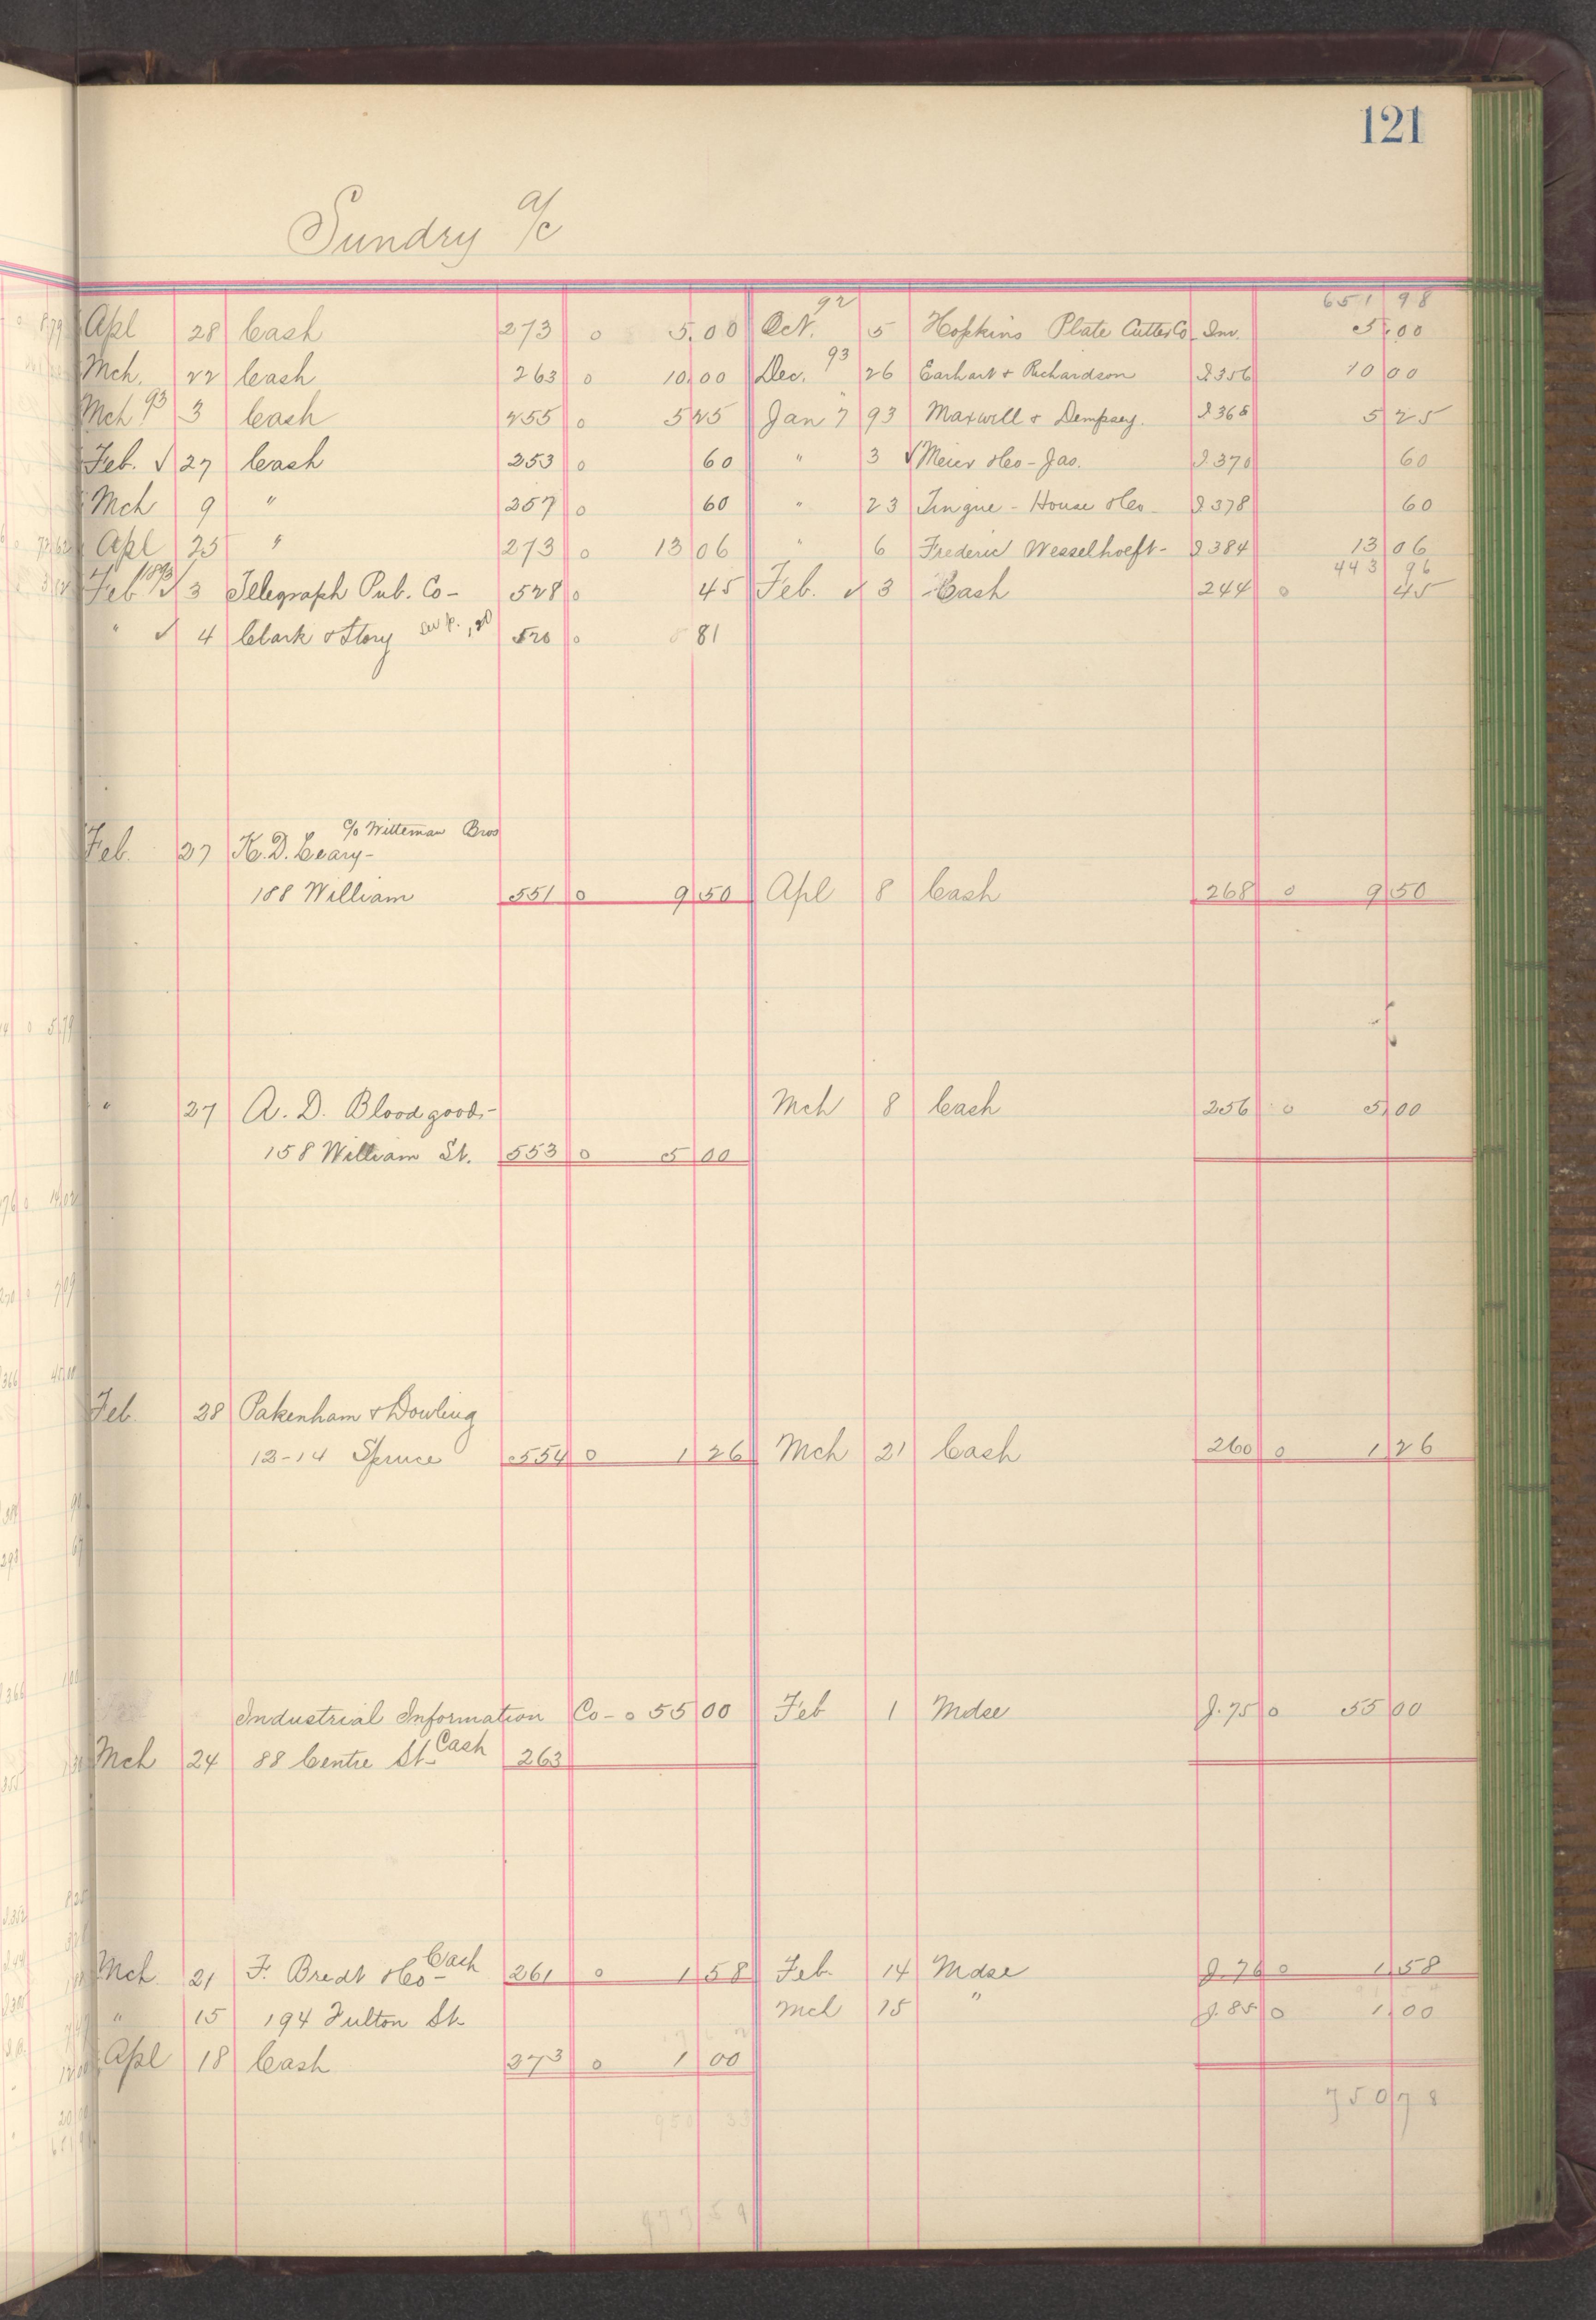 121
Sundry a/c
651 98
Apl 28 Cash 273 0 5.00 Oct. 92 5 Hopkins Plate Cutter Co. Inv. 5.00
Mch. 22 Cash 263 0 10.00 Dec. 26 Earhart & Richardson I 356 10 00
Mch 93 3 Cash 255 0 5 25 Jan 7 93 Maxwell & Dempsey. I 365 5 25
Feb. √ 27 Cash 253 0 60 " 3 √ Meier & Co - Jas. I 370 60
Mch 9 " 257 0 60 " 23 Tingue - House & Co - I 378 60
Apl 25 " 273 0 13 06 " 6 Frederic Wesselhoeft - I 384 13 06
443 96
Feb 1893 √ 3 Telegraph Pub. Co - 528 0 45 Feb. √ 3 Cash 244 0 45
" √ 4 Clark & Story 520 0 81
c/o Witteman Bros
Feb. 27 K. D. Ceary -
188 William 551 0 9 50 Apl 8 Cash 268 0 9 50
" 27 A. D. Bloodgood - Mch 8 Cash 256 0 5 00
158 William St. 553 0 5 00
Feb. 28 Pakenham & Dowling
12-14 Spruce 554 0 1 26 Mch 21 Cash 260 0 1 26
Industrial Information Co - 0 55 00 Feb 1 Mdse J. 75 0 55 00
Mch 24 88 Centre St - Cash 263
Mch 21 F. Bredt & Co - Cash 261 0 1 58 Feb. 14 Mdse J. 76 0 1 58
" 15 194 Fulton St - Mch 15 " J. 85 0 1 00
Apl 18 Cash 273 0 1 00
750 78